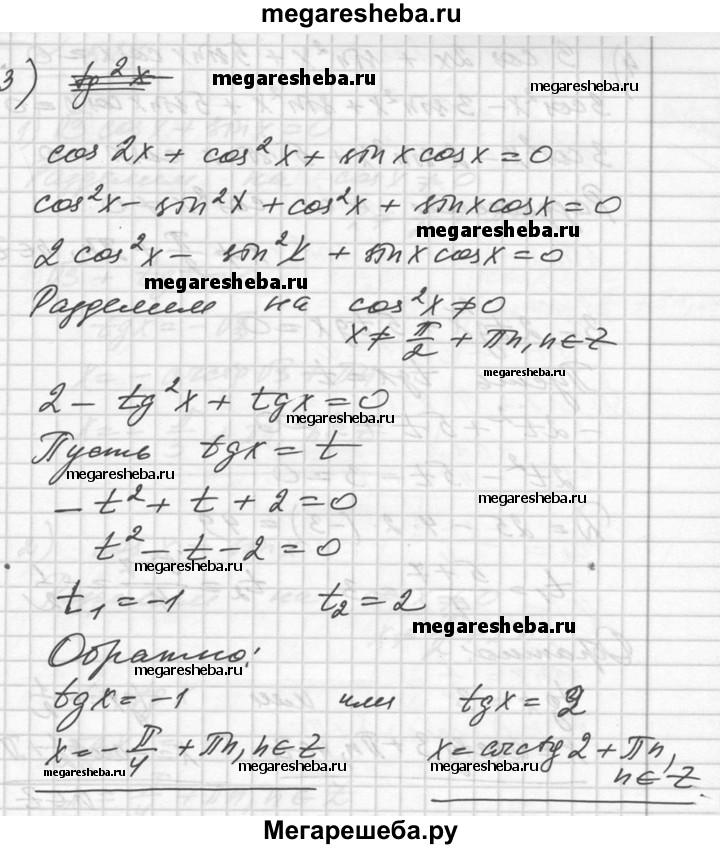 megaresheba.ru
3) tg²x megaresheba.ru megaresheba.ru
cos 2x + cos²x + sinxcosx = 0
cos²x - sin²x + cos²x + sinxcosx = 0
megaresheba.ru
2 cos²x - sin²x + sinxcosx = 0
megaresheba.ru
Разделим на cos²x ≠ 0
x ≠ π/2 + πn, n ∈ Z
megaresheba.ru
2 - tg²x + tgx = 0
megaresheba.ru
Пусть tgx = t
megaresheba.ru
-t² + t + 2 = 0 megaresheba.ru
t² - t - 2 = 0
megaresheba.ru
t₁ = -1 t₂ = 2
megaresheba.ru
Обратно:
megaresheba.ru
tgx = -1 или tgx = 2
x = -π/4 + πn, n ∈ Z x = arctg2 + πn,
megaresheba.ru megaresheba.ru megaresheba.ru
n ∈ Z.
Мегарешеба.ру